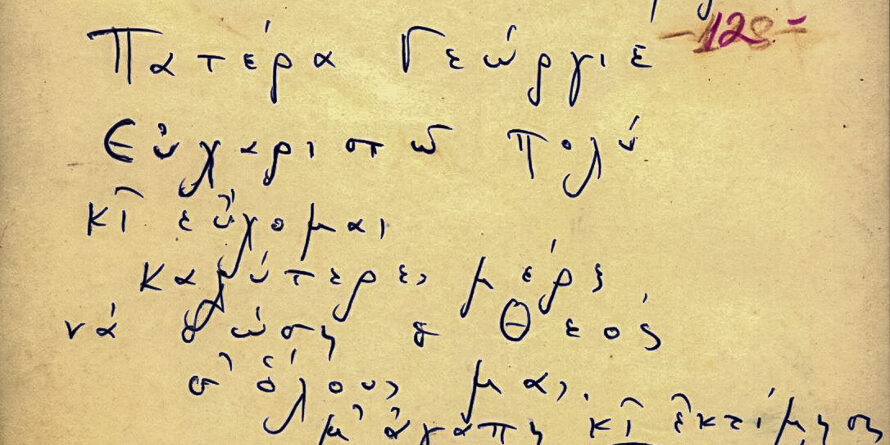 -128-
Πατέρα Γεώργιέ
Εὐχαριστῶ πολύ
κι̑ εὔχομαι
καλύτερες μέρες
νά δώση ὁ Θεός
σ' ὅλους μας.
μ' ἀγάπη κι̑ ἐκτίμηση